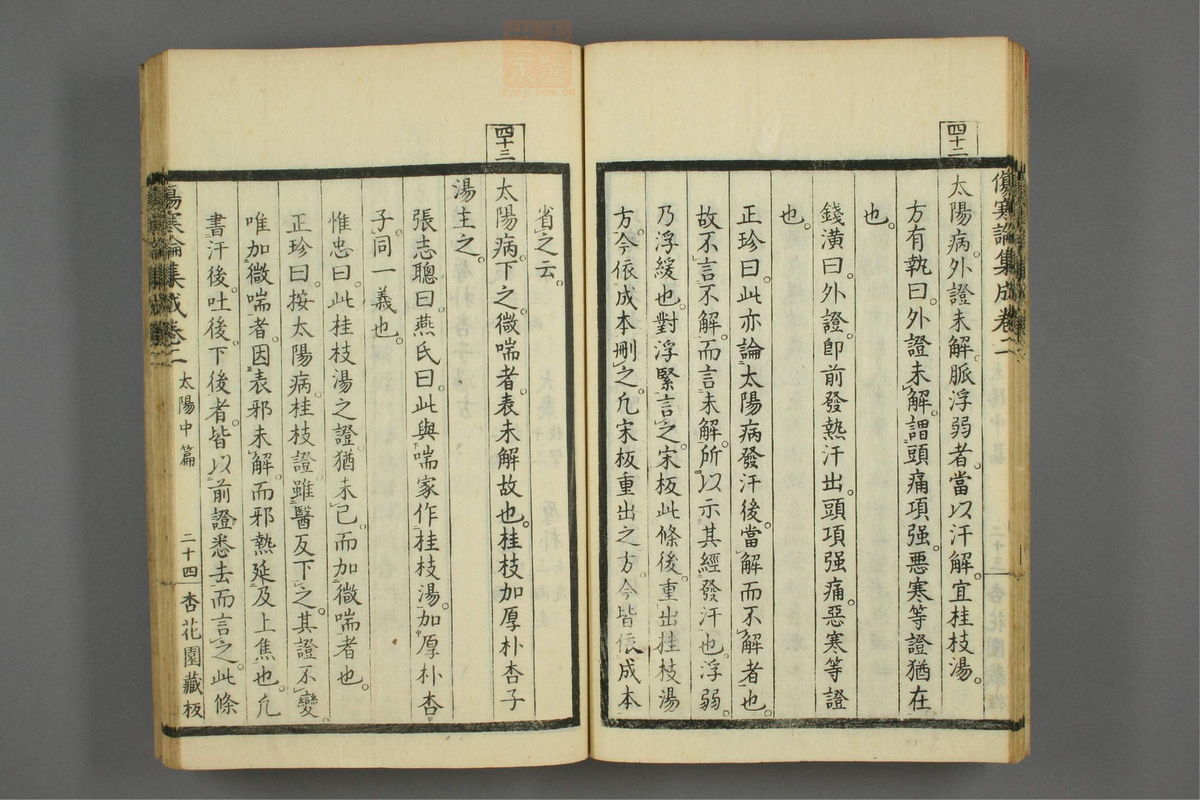 四十二
傷寒論集成卷二
太陽病。外證未解。脈浮弱者。當以汗解。宜桂枝湯。
方有執曰。外證未解。謂頭痛項强。惡寒等證猶在
也。
錢潢曰。外證。卽前發熱汗出。頭項强痛。惡寒等證
也。
正珍曰。此亦論太陽病發汗後。當解而不解者也。
故不言不解。而言未解。所以示其經發汗也。浮弱
乃浮緩也。對浮緊言之。宋板此條後。重出桂枝湯
方。今依成本刪之。凡宋板重出之方。今皆依成本
省之云。
四十三
太陽病。下之。微喘者。表未解故也。桂枝加厚朴杏子
湯主之。
張志聰曰。燕氏曰。此與喘家作桂枝湯。加厚朴杏
子。同一義也。
惟忠曰。此桂枝湯之證猶未已。而加微喘者也。
正珍曰。按太陽病。桂枝證。雖醫反下之。其證不變。
唯加微喘者。因表邪未解。而邪熱延及上焦也。凡
書汗後。吐後。下後者。皆以前證悉去而言之。此條
傷寒論集成卷二 太陽中篇 二十四 杏花園藏板